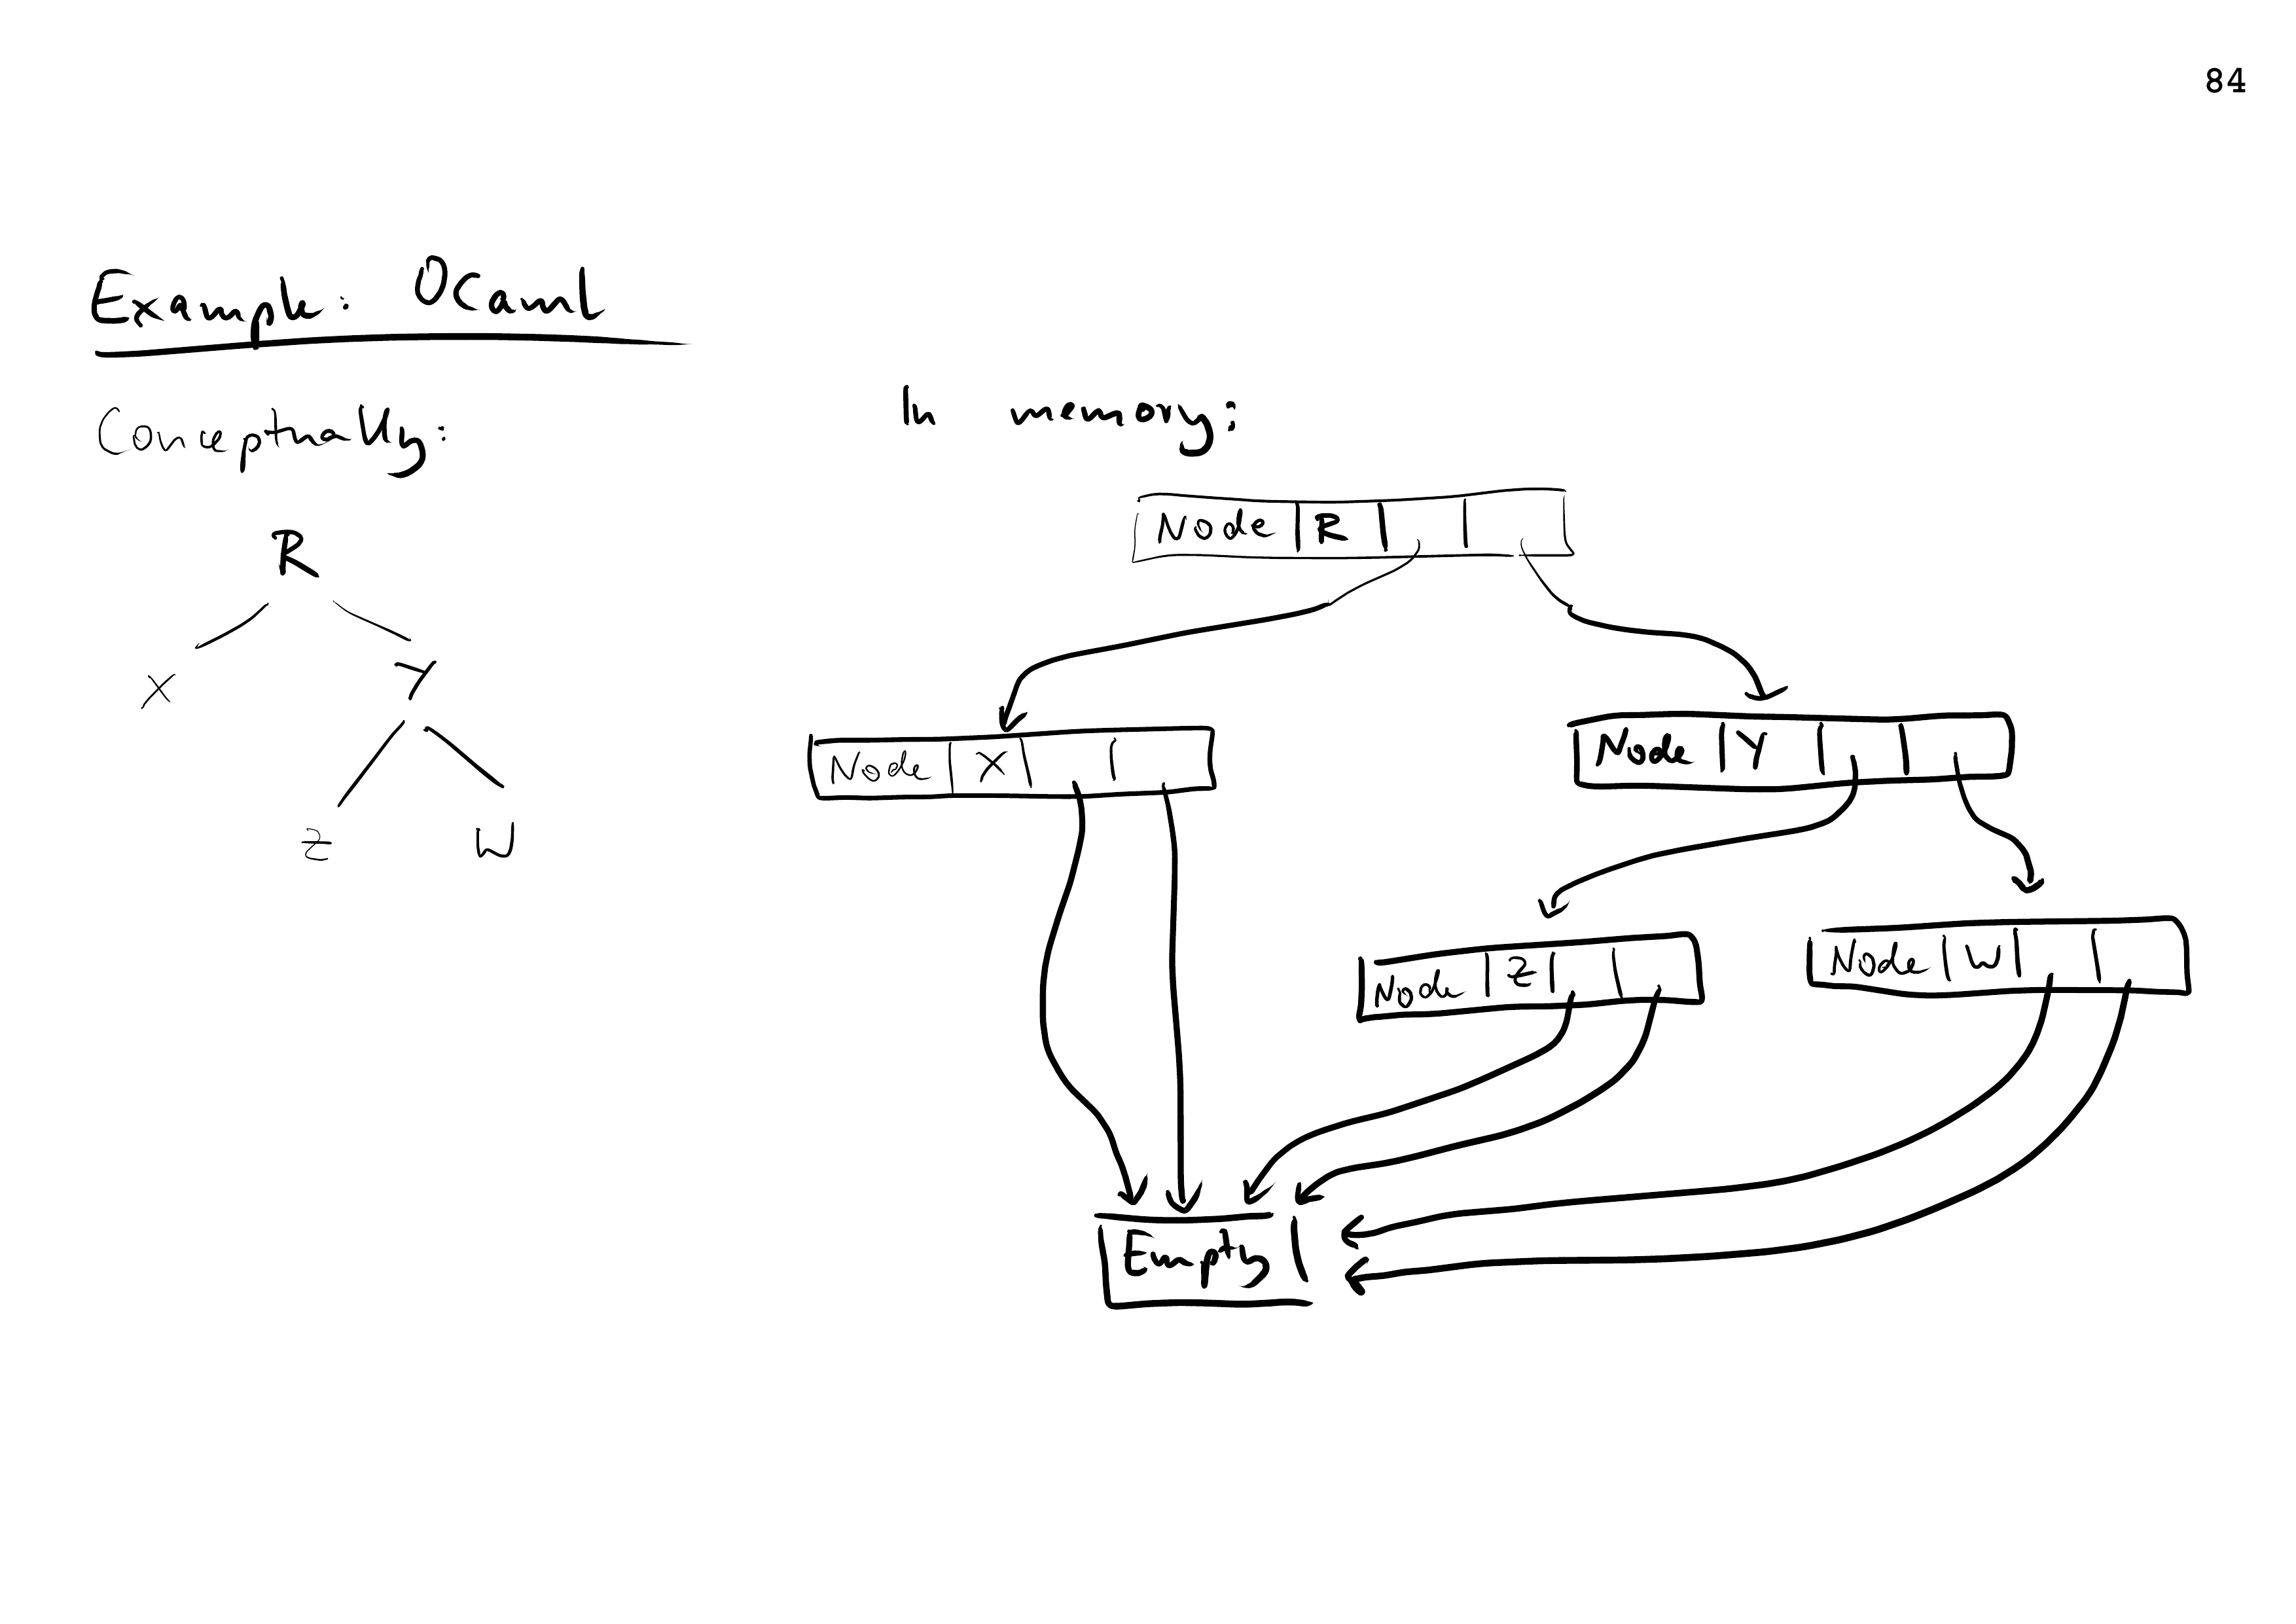 84
Example: OCaml
Conceptually:
In memory:
R
X Y
Z W
Node R
Node X
Node Y
Node Z
Node W
Empty